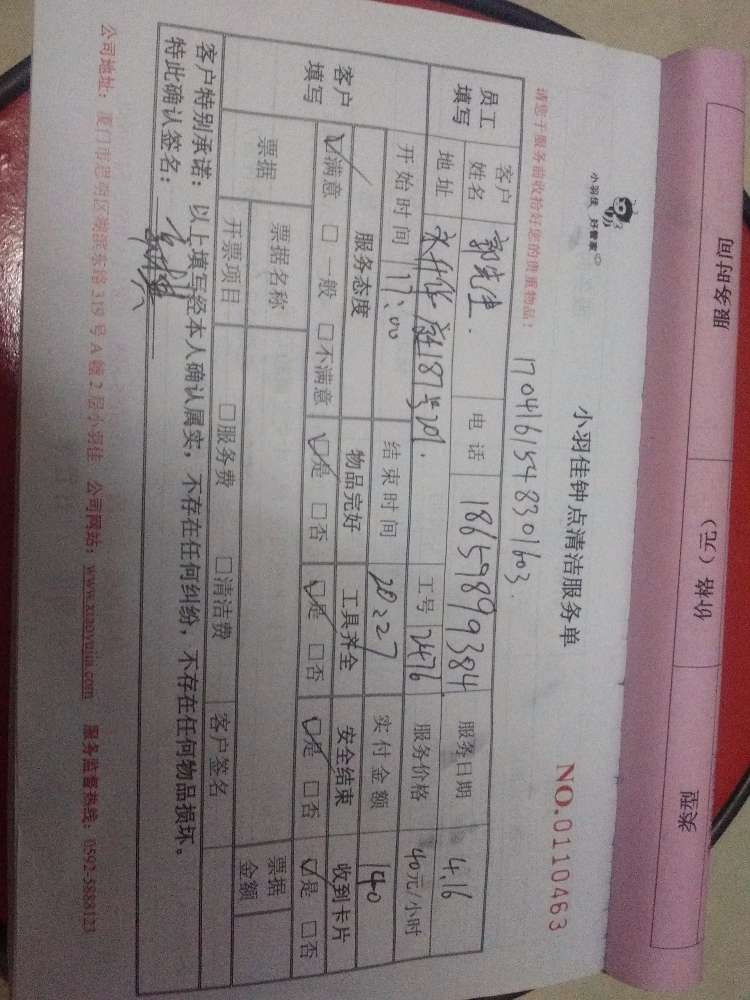 服务时间 价格（元） 类型
小羽佳 好管家
小羽佳钟点清洁服务单
NO.0110463
1704161548301603
请您于服务前收拾好您的贵重物品！
员工填写 客户姓名 郭先生 电话 18659899384 服务日期 4.16
地址 187号 工号 2476 服务价格 40元/小时
客户填写 开始时间 17:00 结束时间 20:27 实付金额 140
服务态度 物品完好 工具齐全 安全结束 收到卡片
☑满意 □一般 □不满意 ☑是 □否 ☑是 □否 ☑是 □否 ☑是 □否
票据 票据名称 票据金额
开票项目 □服务费 □清洁费 客户签名
客户特别承诺：以上填写经本人确认属实，不存在任何纠纷，不存在任何物品损坏。
特此确认签名：
公司地址：厦门市思明区湖滨东路319号A幢2层小羽佳 公司网站：www.xiaoyujia.com 服务监督热线：0592-5888123